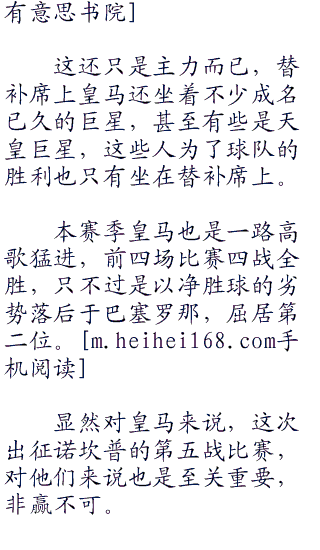 有意思书院]
这还只是主力而已，替
补席上皇马还坐着不少成名
已久的巨星，甚至有些是天
皇巨星，这些人为了球队的
胜利也只有坐在替补席上。
本赛季皇马也是一路高
歌猛进，前四场比赛四战全
胜，只不过是以净胜球的劣
势落后于巴塞罗那，屈居第
二位。[m.heihei168.com手
机阅读]
显然对皇马来说，这次
出征诺坎普的第五战比赛，
对他们来说也是至关重要，
非赢不可。